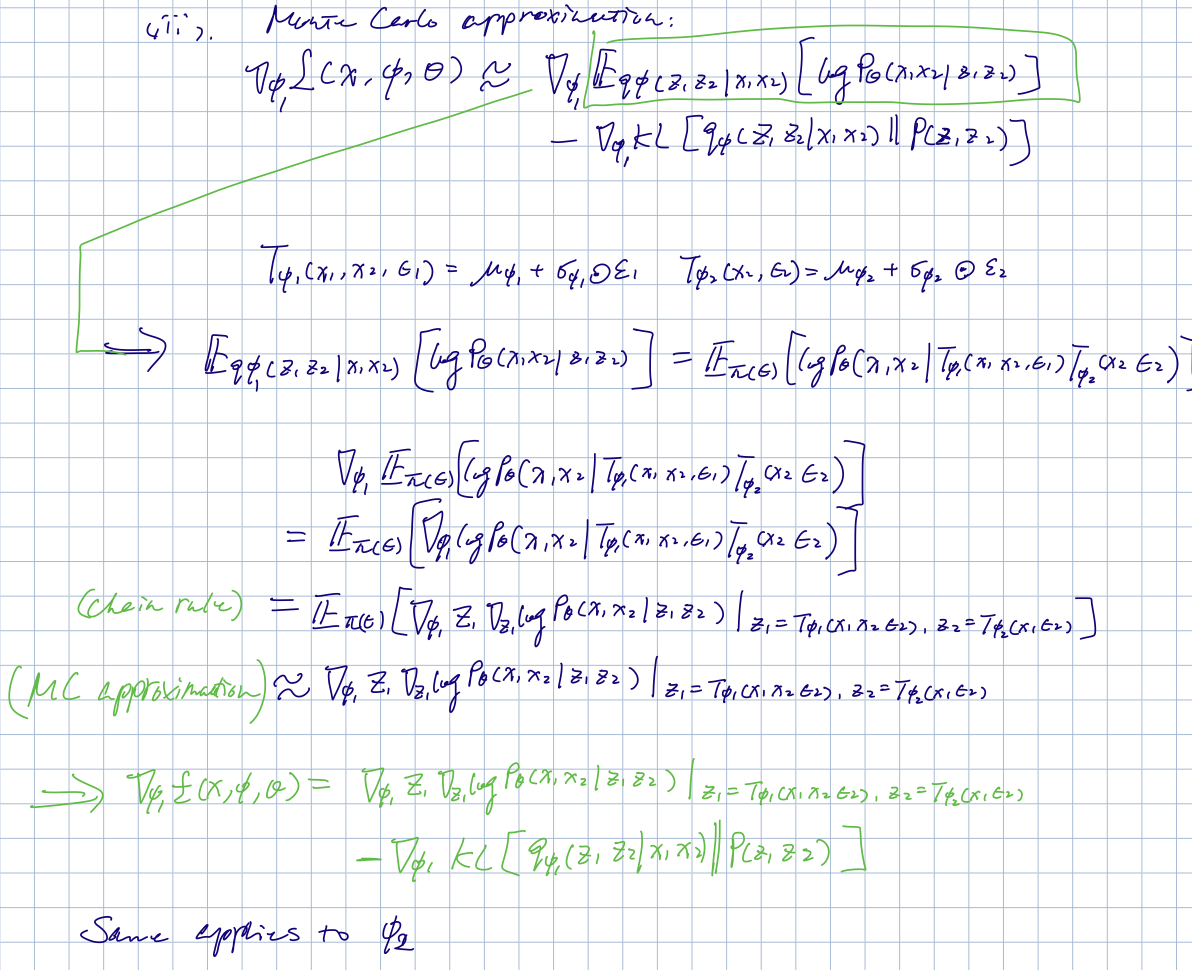 (iii). Monte Carlo approximation:
∇φ₁ L(x, φ, θ) ≈ ∇φ₁ E qφ(z₁ z₂ | x₁ x₂) [log Pθ(x₁ x₂ | z₁ z₂)]
− ∇φ₁ KL [qφ(z₁ z₂ | x₁ x₂) || P(z₁ z₂)]
Tφ₁(x₁, x₂, ε₁) = μφ₁ + σφ₁ ⊙ ε₁ Tφ₂(x₂, ε₂) = μφ₂ + σφ₂ ⊙ ε₂
⟹ E qφ₁(z₁ z₂ | x₁ x₂) [log Pθ(x₁ x₂ | z₁ z₂)] = E π(ε) [log Pθ(x₁ x₂ | Tφ₁(x₁ x₂, ε₁) Tφ₂(x₂ ε₂)]
∇φ₁ E π(ε) [log Pθ(x₁ x₂ | Tφ₁(x₁ x₂, ε₁) Tφ₂(x₂ ε₂)]
= E π(ε) [∇φ₁ log Pθ(x₁ x₂ | Tφ₁(x₁ x₂, ε₁) Tφ₂(x₂ ε₂)]
(chain rule) = E π(ε) [∇φ₁ z₁ ∇z₁ log Pθ(x₁ x₂ | z₁ z₂) | z₁ = Tφ₁(x₁ x₂ ε₂), z₂ = Tφ₂(x₁ ε₂)]
(MC approximation) ≈ ∇φ₁ z₁ ∇z₁ log Pθ(x₁ x₂ | z₁ z₂) | z₁ = Tφ₁(x₁ x₂ ε₂), z₂ = Tφ₂(x₁ ε₂)
⟹ ∇φ₁ £(x, φ, θ) = ∇φ₁ z₁ ∇z₁ log Pθ(x₁ x₂ | z₁ z₂) | z₁ = Tφ₁(x₁ x₂ ε₂), z₂ = Tφ₂(x₁ ε₂)
− ∇φ₁ KL [qφ₁(z₁ z₂ | x₁ x₂) || P(z₁ z₂)]
Same applies to φ₂